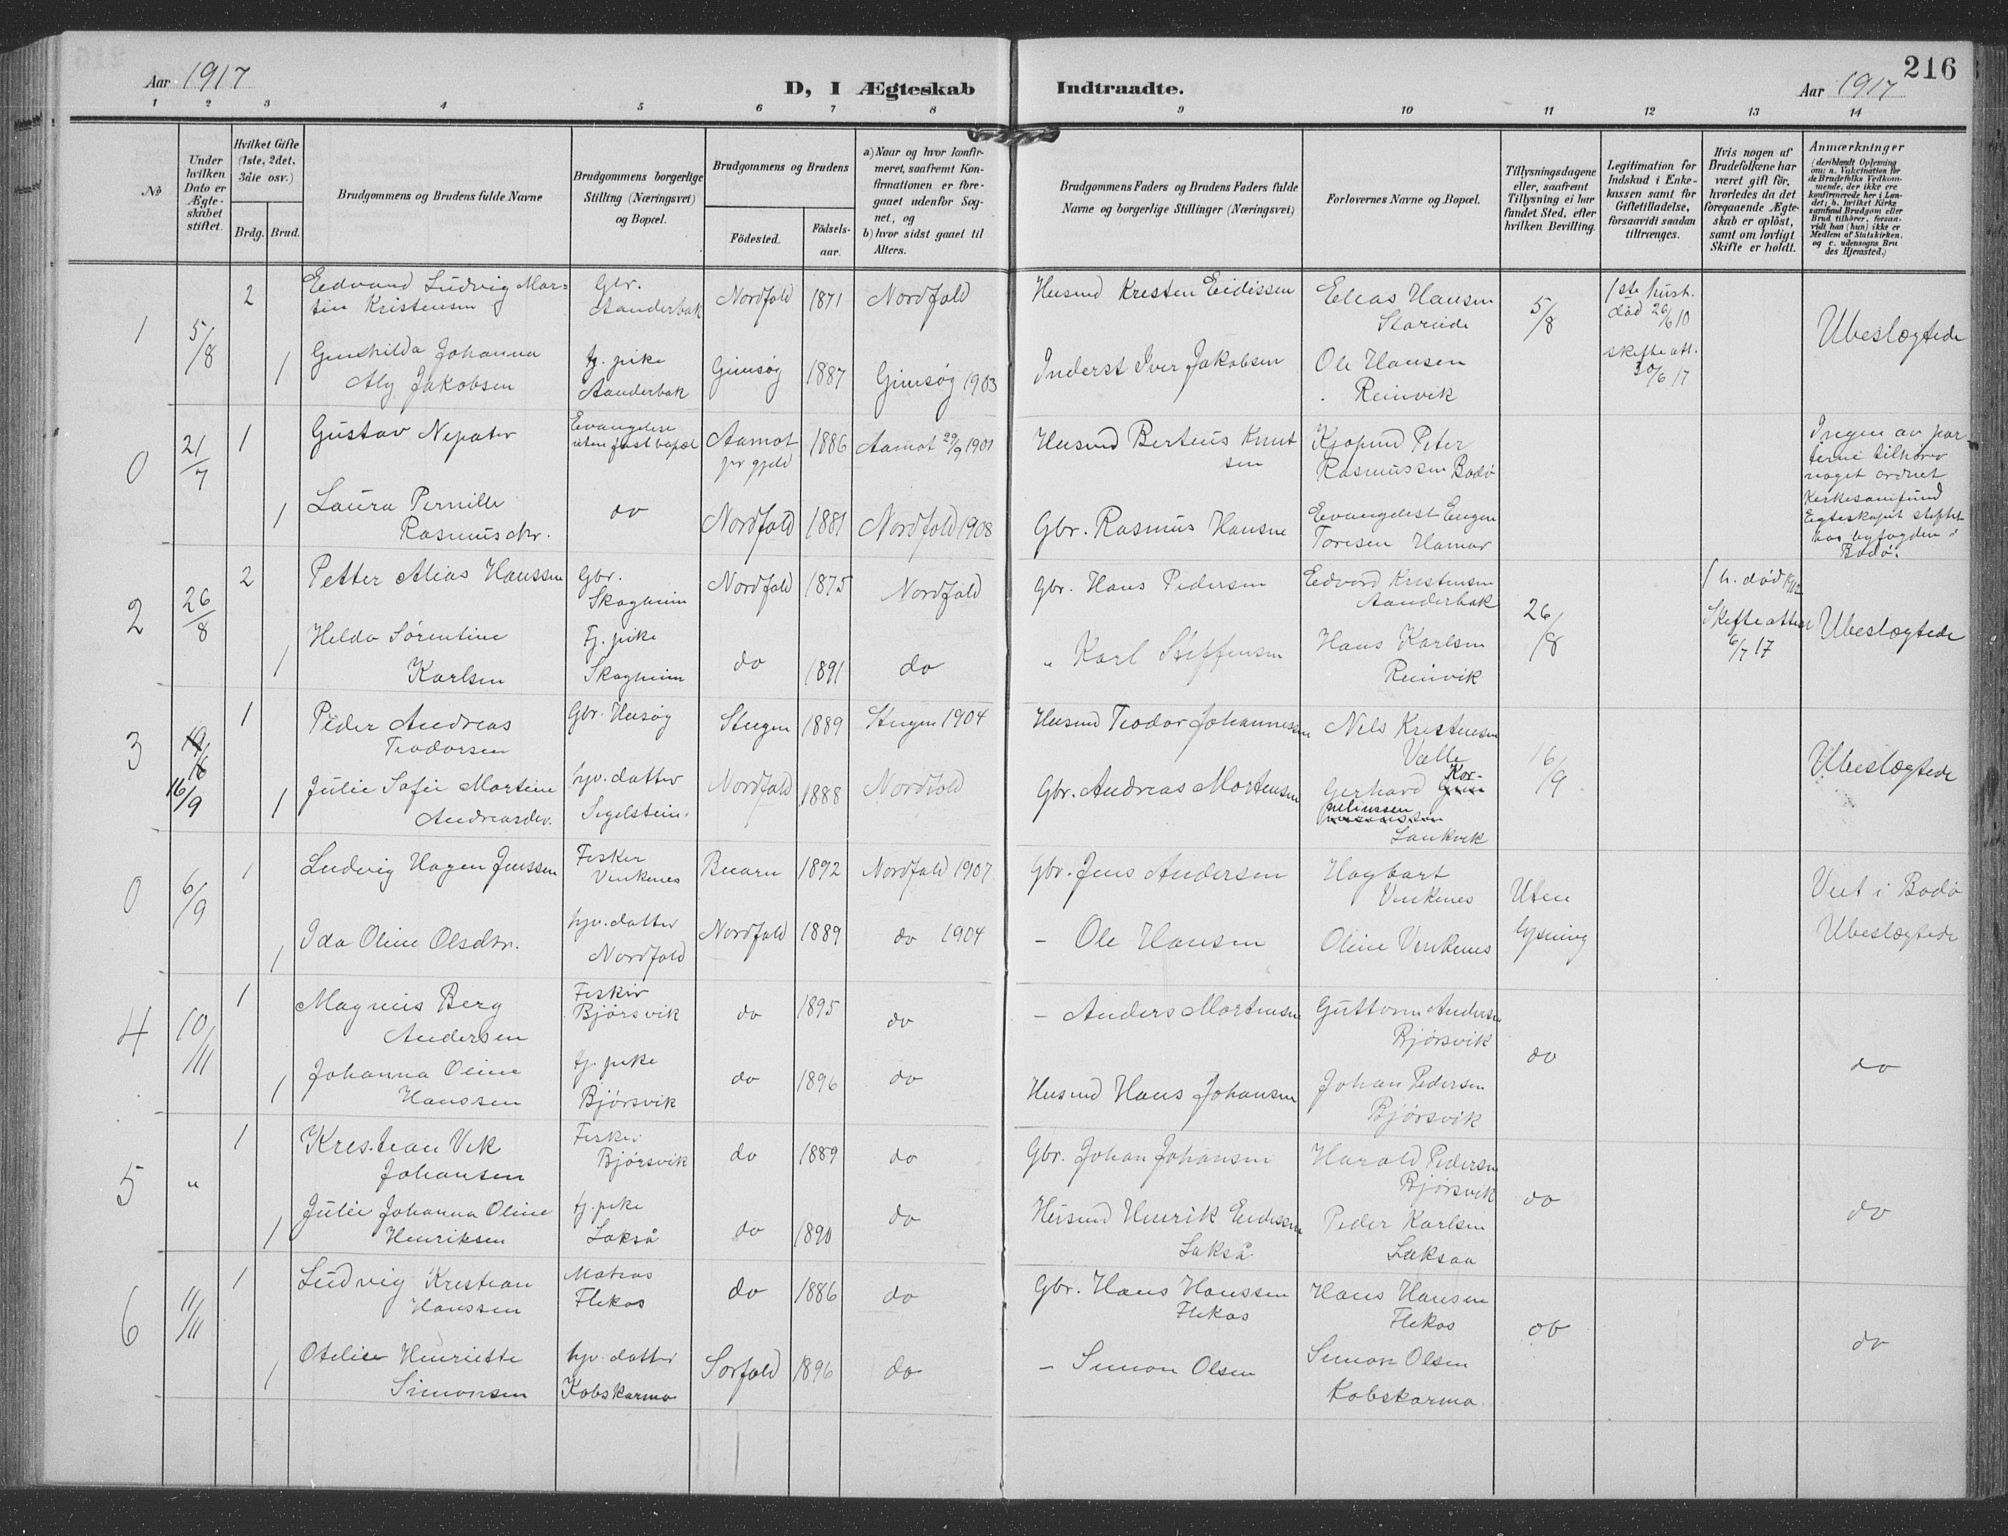 216
Aar 1917
D, I Ægteskab Indtraadte.
Aar 1917
1 2 3 4 5 6 7 8 9 10 11 12 13 14
No
Under hvilken Dato er Ægteskabet stiftet.
Hvilket Gifte (1ste, 2det, 3die osv.)
Brdg. Brud.
Brudgommens og Brudens fulde Navne
Brudgommens borgerlige Stilling (Næringsvei) og Bopæl.
Brudgommens og Brudens
Fødested.
Fødsels-aar.
a) Naar og hvor konfirmeret, saafremt Konfirmationen er foregaaet udenfor Sognet, og
b) hvor sidst gaaet til Alters.
Brudgommens Faders og Brudens Faders fulde Navne og borgerlige Stillinger (Næringsvei)
Forlovernes Navne og Bopæl.
Tillysningsdagene eller, saafremt Tillysning ei har fundet Sted, efter hvilken Bevilling.
Legitimation for Indskud i Enkekassen samt for Giftetilladelse, forsaavidt saadan tiltrænges.
Hvis nogen af Brudefolkene har været gift før, hvorledes da det foregaaende Ægteskab er opløst, samt om lovligt Skifte er holdt.
Anmærkninger
(deriblandt Oplysning om: a. Vakcination for de Brudefolks Vedkommende, der ikke ere konfirmerede her i Landet; b. hvilket Kirkesamfund Brudgom eller Brud tilhører, forsavidt han (hun) ikke er Medlem af Statskirken, og c. udensogns Brudes Hjemsted.)
1 5/8 2 Edvard Ludvig Martin Kristensen Gbr. Aanderbak Nordfold 1871 Nordfold Husmd Kresten Eidissen Elias Hansen 5/8 1ste hust. død 26/6 10 Ubeslegtede
1 Gunhilda Johanna Aly Jakobsen tj. pike Aanderbak Gimsøy 1887 Gimsøy 1903 Inderst Iver Jakobsen Ole Hansen Reinvik skifteatt. 30/6 17
0 21/7 1 Gustav Evangelist uten fast bopæl Aamot 1886 Aamot 29/9 1901 Husmd Bertius Knutsen Kjøpmd Peter Rasmussen Bodø Ingen av parterne tilhører noget ordnet kirkesamfund Egteskapet stiftet hos byfogden i Bodø.
1 Laura Pernille Rasmusdtr. do Nordfold 1881 Nordfold 1908 Gbr. Rasmus Hansen Evangelist Eugen Toresen Hamar
2 26/8 2 Petter Alias Hanssen Gbr. Skogheim Nordfold 1875 Nordfold Gbr. Hans Pedersen Edvard Kristensen Aanderbak 26/8 1 h. død Skifteattest 6/7 17 Ubeslegtede
1 Helda Sørentine Karlsen Tj. pike Skogheim do 1891 do " Karl Steffensen Hans Karlsen Reinvik
3 16/9 1 Peder Andreas Teodorsen Gbr. Husøy Steigen 1889 Steigen 1904 Husmd Teodor Johannessen Nils Kristensen Valle 16/9 Ubeslegtede
1 Julie Sofie Martine Andreasdtr. hjv. datter Segelstein. Nordfold 1888 Nordfold Gbr. Andreas Mortensen Gerhard Kornelinssen Lankvik
0 6/9 1 Ludvig Hagen Jenssen Fisker Vinkenes Beiarn 1892 Nordfold 1907 Gbr. Jens Andersen Hagbart Vinkenes Uten lysning Viet i Bodø Ubeslegtede
1 Ida Oline Olsdtr. hjv. datter Nordfold Nordfold 1889 do 1904 - Ole Hansen Oline Vinkenes
4 10/11 1 Magnus Berg Andersen Fisker Bjørsvik do 1895 do - Anders Mortensen Guttorm Andersen Bjørsvik do do
1 Johanna Oline Hanssen tj. pike Bjørsvik do 1896 do Husmd Hans Johansen Johan Pedersen Bjørsvik
5 " 1 Krestian Vik Johansen Fisker Bjørsvik do 1889 do Gbr. Johan Johansen Harald Pedersen Bjørsvik do do
1 Julie Johanna Oline Henriksen tj. pike Lakså do 1890 do Husmd Henrik Eidissen Lakså Peder Karlsen Laksaa
6 11/11 1 Ludvig Kristian Hanssen Matros Flekas do 1886 do Gbr. Hans Hanssen Flekas Hans Hansen Flekas do do
1 Otelie Henriette Simonsen hjv. datter Kobskarma Sørfold 1896 do - Simon Olsen Simon Olsen Kobskarma